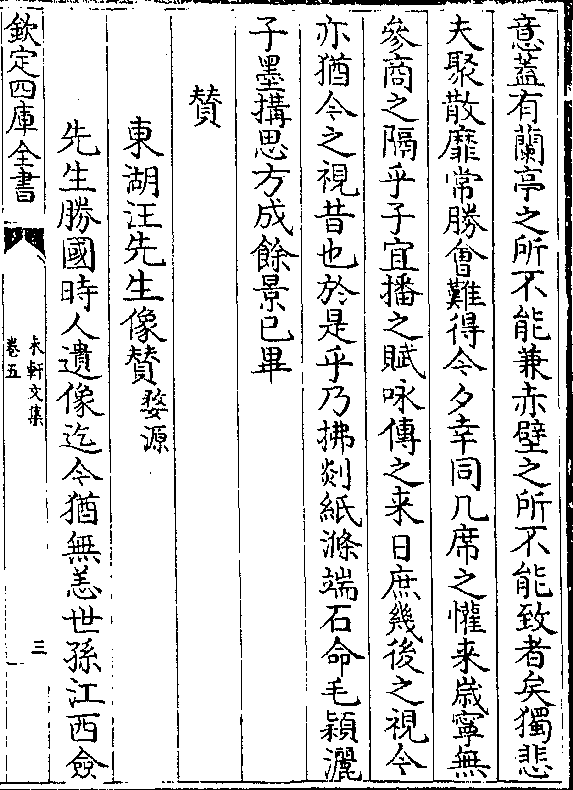 意葢有蘭亭之所不能兼赤壁之所不能致者矣獨悲
夫聚散靡常勝㑹難得今夕幸同几席之懽来嵗寧無
參商之隔乎子宜播之賦咏傳之来日庶幾後之視今
亦猶今之視昔也於是乎乃拂剡紙滌端石命毛穎灑
子墨搆思方成餘景已畢
賛
東湖汪先生像賛婺源
先生勝國時人遺像迄今猶無恙世孫江西僉
欽定四庫全書
未軒文集
卷五
三